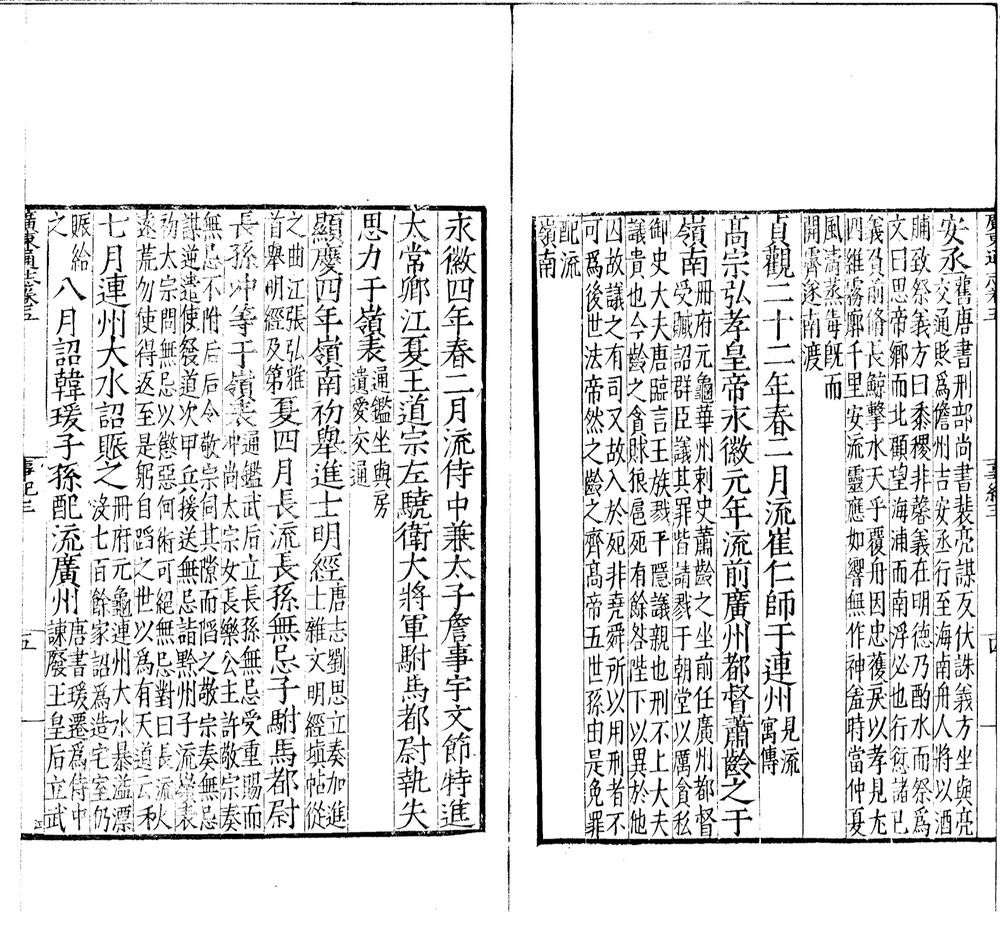 安丞舊唐書刑部尚書裴亮謀反伏誅義方坐與亮
交通貶爲儋州吉安丞行至海南舟人將以酒
脯致祭義方曰黍稷非馨義在明德乃酌水而祭爲
文曰思帝鄉而北顧望海浦而南浮必也行愆諸已
義負前脩長鯨擊水天乎覆舟因忠獲戾以孝見尤
四維霧廓千里安流靈應如響無作神羞時當仲夏
風濤蒸毒旣而
開霽遂南渡
貞觀二十二年春二月流崔仁師于連州見流
寓傳
高宗弘孝皇帝永徽元年流前廣州都督蕭齡之于
嶺南冊府元龜華州刺史蕭齡之坐前任廣州都督
受贓詔群臣議其罪皆請戮于朝堂以厲貪私
御史大夫唐臨言王族戮于隱議親也刑不上大夫
議貴也今齡之貪賕狼扈死有餘咎陛下以異於他
囚故議之有司又故入於死非堯舜所以用刑者不
可爲後世法帝然之齡之齊高帝五世孫由是免罪
配流
嶺南
永徽四年春二月流侍中兼太子詹事宇文節特進
太常卿江夏王道宗左驍衛大將軍駙馬都尉執失
思力于嶺表通鑑坐與房
遺愛交通
顯慶四年嶺南初舉進士明經唐志劉思立奏加進
士雜文明經塡帖從
之曲江張弘雅
首舉明經及第夏四月長流長孫無忌子駙馬都尉
長孫冲等于嶺表通鑑武后立長孫無忌受重賜而
冲尚太宗女長樂公主許敬宗奏
無忌不附后后令敬宗伺其隙而陷之敬宗奏無忌
謀逆遣使發道次甲兵援送無忌詣黔州子流嶺表
初太宗問無忌以懲惡何術可絕無忌對曰長流秋
遠荒勿使得返至是躬自蹈之世以爲有天道云
七月連州大水詔賑之冊府元龜連州大水暴溢漂
沒七百餘家詔爲造宅室仍
賑給
之八月詔韓瑗子孫配流廣州唐書瑗遷爲侍中
諫廢王皇后立武
廣東通志卷五
事紀三
五